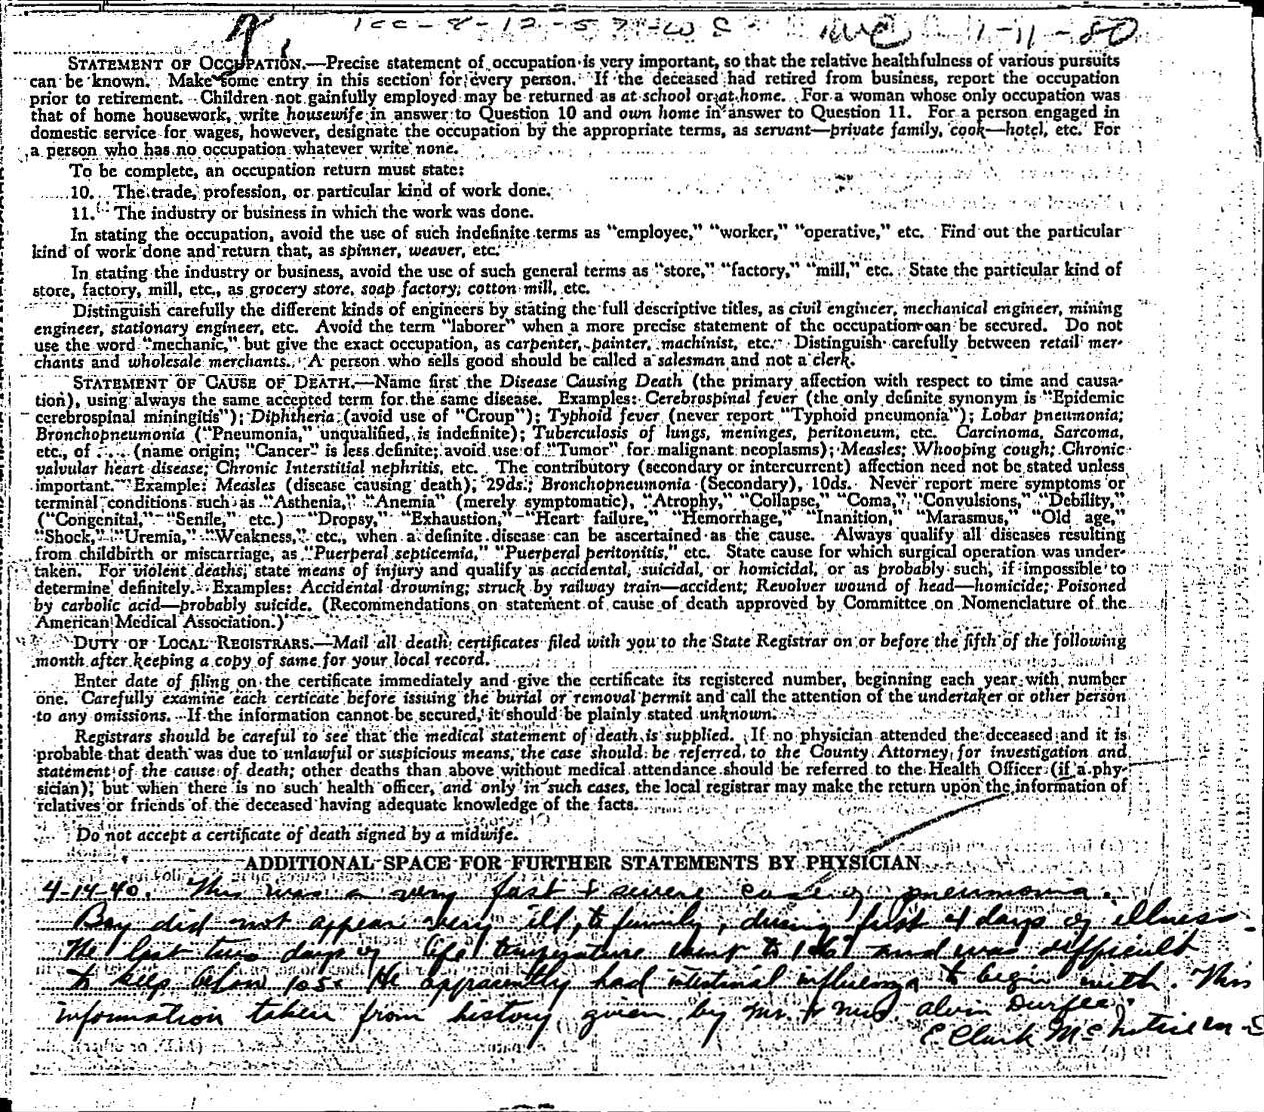 1cc-8-12-57-WC- 1-11-80
STATEMENT OF OCCUPATION.—Precise statement of occupation is very important, so that the relative healthfulness of various pursuits
can be known. Make some entry in this section for every person. If the deceased had retired from business, report the occupation
prior to retirement. Children not gainfully employed may be returned as at school or at home. For a woman whose only occupation was
that of home housework, write housewife in answer to Question 10 and own home in answer to Question 11. For a person engaged in
domestic service for wages, however, designate the occupation by the appropriate terms, as servant—private family, cook—hotel, etc. For
a person who has no occupation whatever write none.
To be complete, an occupation return must state:
10. The trade, profession, or particular kind of work done.
11. The industry or business in which the work was done.
In stating the occupation, avoid the use of such indefinite terms as "employee," "worker," "operative," etc. Find out the particular
kind of work done and return that, as spinner, weaver, etc.
In stating the industry or business, avoid the use of such general terms as "store," "factory," "mill," etc. State the particular kind of
store, factory, mill, etc., as grocery store, soap factory, cotton mill, etc.
Distinguish carefully the different kinds of engineers by stating the full descriptive titles, as civil engineer, mechanical engineer, mining
engineer, stationary engineer, etc. Avoid the term "laborer" when a more precise statement of the occupation can be secured. Do not
use the word "mechanic," but give the exact occupation, as carpenter, painter, machinist, etc. Distinguish carefully between retail mer-
chants and wholesale merchants. A person who sells good should be called a salesman and not a clerk.
STATEMENT OF CAUSE OF DEATH.—Name first the Disease Causing Death (the primary affection with respect to time and causa-
tion), using always the same accepted term for the same disease. Examples: Cerebrospinal fever (the only definite synonym is "Epidemic
cerebrospinal miningitis"); Diphtheria (avoid use of "Croup"); Typhoid fever (never report "Typhoid pneumonia"); Lobar pneumonia;
Bronchopneumonia ("Pneumonia," unqualified, is indefinite); Tuberculosis of lungs, meninges, peritoneum, etc. Carcinoma, Sarcoma,
etc., of .... (name origin; "Cancer" is less definite; avoid use of "Tumor" for malignant neoplasms); Measles; Whooping cough; Chronic
valvular heart disease; Chronic Interstitial nephritis, etc. The contributory (secondary or intercurrent) affection need not be stated unless
important. Example: Measles (disease causing death), 29ds.; Bronchopneumonia (Secondary), 10ds. Never report mere symptoms or
terminal conditions such as "Asthenia," "Anemia" (merely symptomatic), "Atrophy," "Collapse," "Coma," "Convulsions," "Debility,"
("Congenital," "Senile," etc.) "Dropsy," "Exhaustion," "Heart failure," "Hemorrhage," "Inanition," "Marasmus," "Old age,"
"Shock," "Uremia," "Weakness," etc., when a definite disease can be ascertained as the cause. Always qualify all diseases resulting
from childbirth or miscarriage, as "Puerperal septicemia," "Puerperal peritonitis," etc. State cause for which surgical operation was under-
taken. For violent deaths, state means of injury and qualify as accidental, suicidal, or homicidal, or as probably such, if impossible to
determine definitely. Examples: Accidental drowning; struck by railway train—accident; Revolver wound of head—homicide; Poisoned
by carbolic acid—probably suicide. (Recommendations on statement of cause of death approved by Committee on Nomenclature of the
American Medical Association.)
DUTY OF LOCAL REGISTRARS.—Mail all death certificates filed with you to the State Registrar on or before the fifth of the following
month after keeping a copy of same for your local record.
Enter date of filing on the certificate immediately and give the certificate its registered number, beginning each year with number
one. Carefully examine each certicate before issuing the burial or removal permit and call the attention of the undertaker or other person
to any omissions. If the information cannot be secured, it should be plainly stated unknown.
Registrars should be careful to see that the medical statement of death is supplied. If no physician attended the deceased and it is
probable that death was due to unlawful or suspicious means, the case should be referred to the County Attorney for investigation and
statement of the cause of death; other deaths than above without medical attendance should be referred to the Health Officer (if a phy-
sician); but when there is no such health officer, and only in such cases, the local registrar may make the return upon the information of
relatives or friends of the deceased having adequate knowledge of the facts.
Do not accept a certificate of death signed by a midwife.
ADDITIONAL SPACE FOR FURTHER STATEMENTS BY PHYSICIAN
4-14-40. This was a very fast & severe case of pneumonia.
Boy did not appear very ill, to family, during first 4 days of illness.
The last two days of life temperature went to 106° and was difficult
to keep below 105° He apparently had intestinal influenza to begin with. This
information taken from history given by Mr. & Mrs. Alvin Durfee.
E Clark McIntire M.D